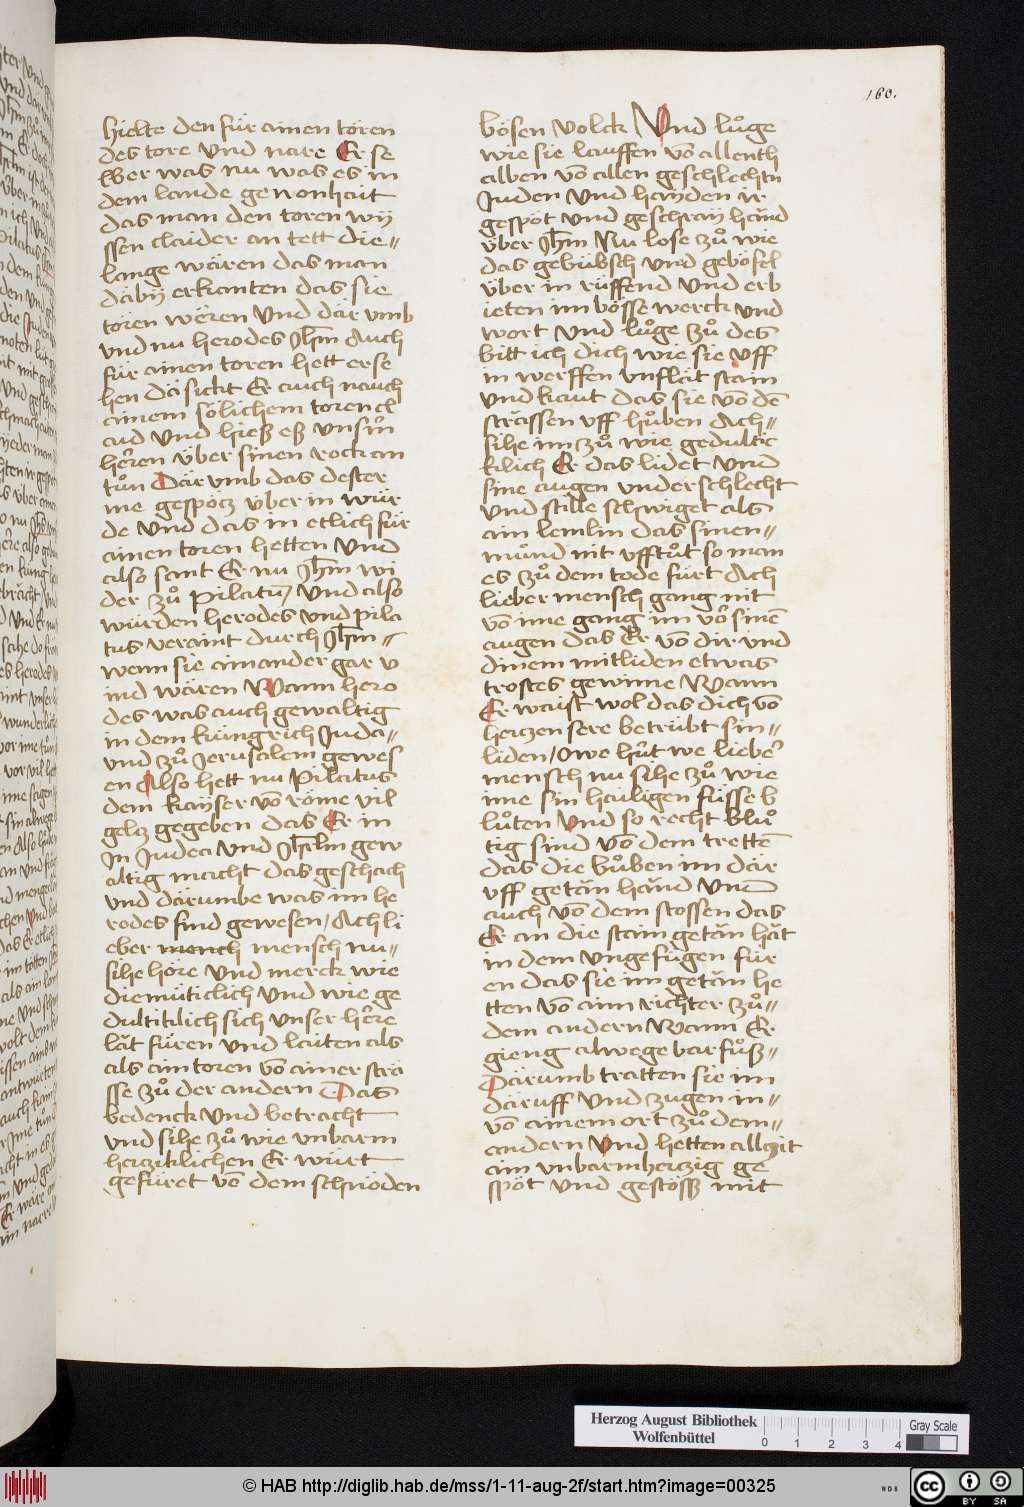 160.
hielte den für ainen tören
des tore vnd nare Er se
lber was nu was es in
dem lande gewonhait
das man den toren wÿ
ssen claider an tett die=
lange wären das man
däbÿ erkanten das sie
tören wëren vnd där vmb
vnd nu herodes Jhm̄ Auch
für ainen toren hett erse
hen dä sickt Er auch nauch
ainem sölichem toren cl
aid vnd hieß eß vnsern
heren über sinen rock an
tůn Där vmb das dester
me gespöcz über in wür
de vnd das in etlich für
ainen toren hetten vnd
also sant Er nu Jhm̄ wi
der zů Pilatum vnd also
würden herodes vnd pila
tus veraint durch Jhm̄ =
wenn sie ainander gar v
ind wären Wann hero
des was auch gewaltig
in dem küngrich Juda=
vnd zů Jerusalem gewes
en Also hett nu Pilatus
dem kaÿser vō röme vil
gelcz gegeben das Er in
Jn Judea vnd Jhrlm gew
altig macht das geschach
vnd därumbe was im he
rodes find gewesen / Ach li
eber mench mensch nu=
sihe höre vnd merck wie
diemüticlich vnd wie ge
dultiklich sich vnser here
lät füren vnd läiten als
als ain toren vō ainer strä
sse zů der andern Das
bedenck vnd betracht
vnd sihe zů wie vnbarm
hercziklichen Er würt
gefüret vō dem schnöden
bösen volck Vnd lůge
wie sie lauffen vō allenth
alben vō allen geschlechtn
Juden vnd haÿden ir
gespöt vnd geschraÿ händ
über Jhm̄ Nu lose zů wie
das gebübsch vnd geböfel
über in rüffend vnd erb
ieten im bösse werck vnd
wort vnd lůge zů des
bitt ich dich wie sie vff
in werffen vnflät stain
vnd kaut das sie vō dē
strässen vff hůben Ach=
sihe im zů wie gedultic
klich Er das lidet vnd
sine augen vnderschlecht
vnd stille schwiget als
ain lemlin das sinen=
můnd nit vfftůt so man
es zů dem tode fürt Ach
lieber mensch gang nit
vō ime gang im vor sinē
augen das Er vō dir vnd
dinem mitliden etwas
trostes gewinne Wann
Er waist wol das dich vō
herczen sere betrübt sin=
liden / Owe hüt we lieber
mensch nu sihe zů wie
ime sin hailigen füsse b
lůten Vnd so recht blů
tig sind vō dem trettē
das die bůben im där
vff getän händ vnd
auch vō dem stossen das
Er an die stain getän hät
in dem vngefügen für
en das sie im getän he
tten vō aim richter zů=
dem andern Wann Er
gieng alwege barfůß=
Därumb tratten sie im
däruff vnd zugen in=
vō ainem ort zů dem=
andern Vnd hetten allczit
ain vnbarmherczig ge
spöt vnd gestöß mit
Herzog August Bibliothek
Wolfenbüttel
0 1 2 3 4
Gray Scale
© HAB http://diglib.hab.de/mss/1-11-aug-2f/start.htm?image=00325
WDB
cc BY SA